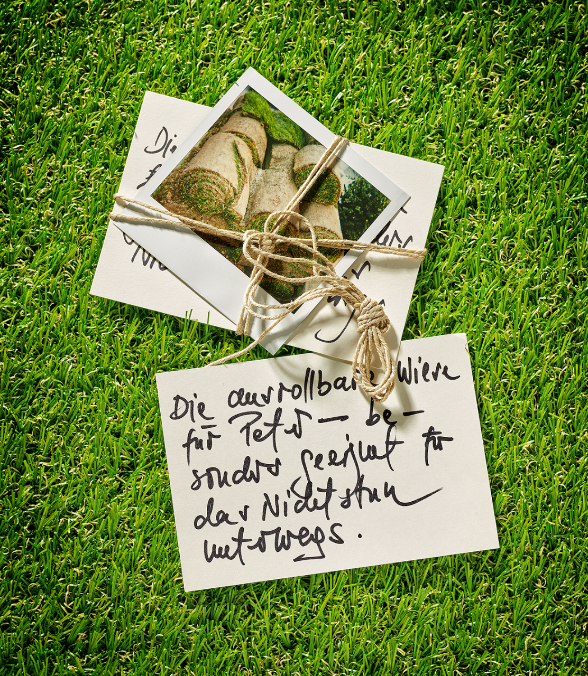 Die
Die ausrollbare Wiese
für Peter — be—
sonders geeignet für
das Nichtstun
unterwegs.